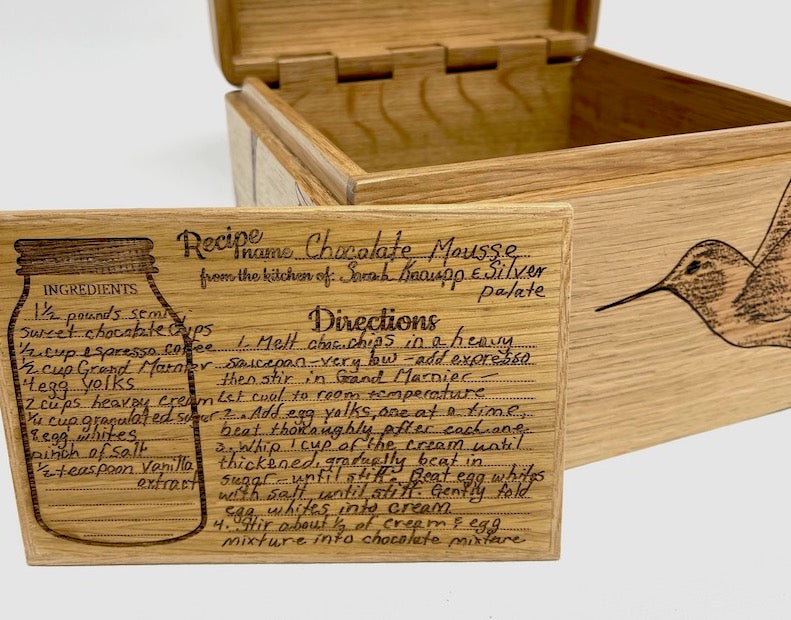 Recipe name Chocolate Mousse
from the kitchen of: Sarah Knaupp & Silver
palate
INGREDIENTS
1½ pounds semi
sweet chocolate chips
½ cup espresso coffee
½ cup Grand Marnier
4 egg yolks
2 cups heavey cream
¼ cup granulated sugar
8 egg whites
pinch of salt
½ teaspoon vanilla
extract
Directions
1. Melt choc. chips in a heavy
saucepan - very low - add expresso
then stir in Grand Marnier
Let cool to room temperature
2. Add egg yolks, one at a time,
beat thoroughly after each one.
3. Whip 1 cup of the cream until
thickened, gradually beat in
sugar - until stiff. Beat egg whites
with salt until stiff. Gently fold
egg whites into cream
4. Stir about ⅓ of cream & egg
mixture into chocolate mixture